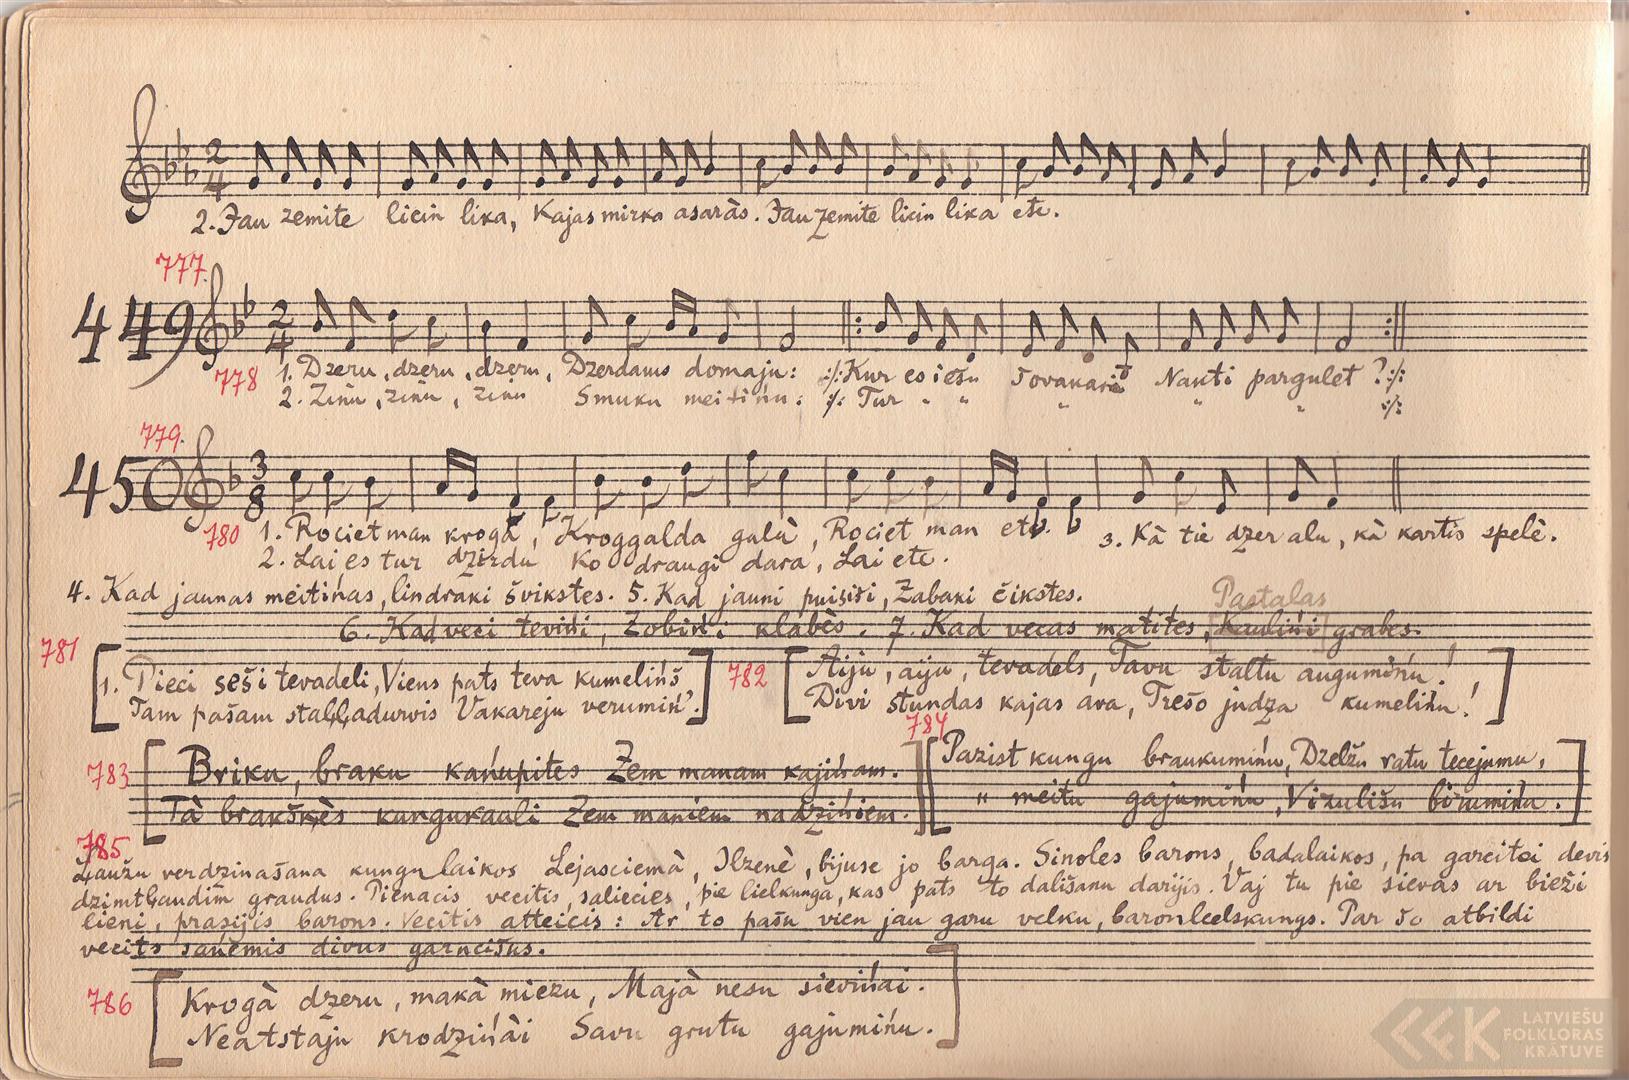 2. Jau zemite licin lika, Kajas mirka asaràs. Jau zemite licin lika etc.
777.
449
778 1. Dzeru, dzeru, dzeru, Dzerdams domaju: :/: Kur es iešu šovakari Nakti pargulet? :/:
2. Zinu, zinu, zinu Smuku meitińu: :/: Tur " " " " " :/:
779.
450
780 1. Rociet man krogà, Kroggalda galà, Rociet man etc. 3. Kà tie dzer alu, kà kartis spelè.
2. Lai es tur dzirdu Ko draugi dara, Lai etc.
4. Kad jaunas meitińas, lindraki švikstes. 5. Kad jauni puisiši, Zabaki čikstes.
Pastalas
6. Kad veci tevińi, Zobińi klabès. 7. Kad vecas matites, [Kaulińi] grabes.
781
1. Pieci seši tevadeli, Viens pats teva kumelińš
Tam pašam stalladurvis Vakareju verumiń'.
782 Aiju, aiju, tevadels, Tavu staltu augumińu!
Divi stundas kajas ava, Trešo judza kumelińu!
783 Briku, braku kańupites Zem manam kajińam.
Tà brakšķès kungukauli Zem maniem nadzińiem.
784
Pazist kungu braukumińu, Dzelžu ratu tecejumu,
" meitu gajumińu, Vizulišu birumińu.
785
Laužu verdzinašana kungu laikos Lejasciemà, Ilzenè, bijuse jo barga. Sinoles barons, badalaikos, pa gareitei devis
dzimtļaudim graudus. Pienacis vecitis, saliecies, pie lielkunga, kas pats to dališanu darijis. Vaj tu pie sievas ar bieži
lieni, prasijis barons. Vecitis atteicis: Ar to pašu vien jau garu velku, baronleelskungs. Par šo atbildi
vecits sańèmis divus garncišus.
786 Krogà dzeru, makà miezu, Majà nesu sievińai.
Neatstaju krodzińài Savu grutu gajumińu.
LATVIEŠU
FOLKLORAS
KRĀTUVE